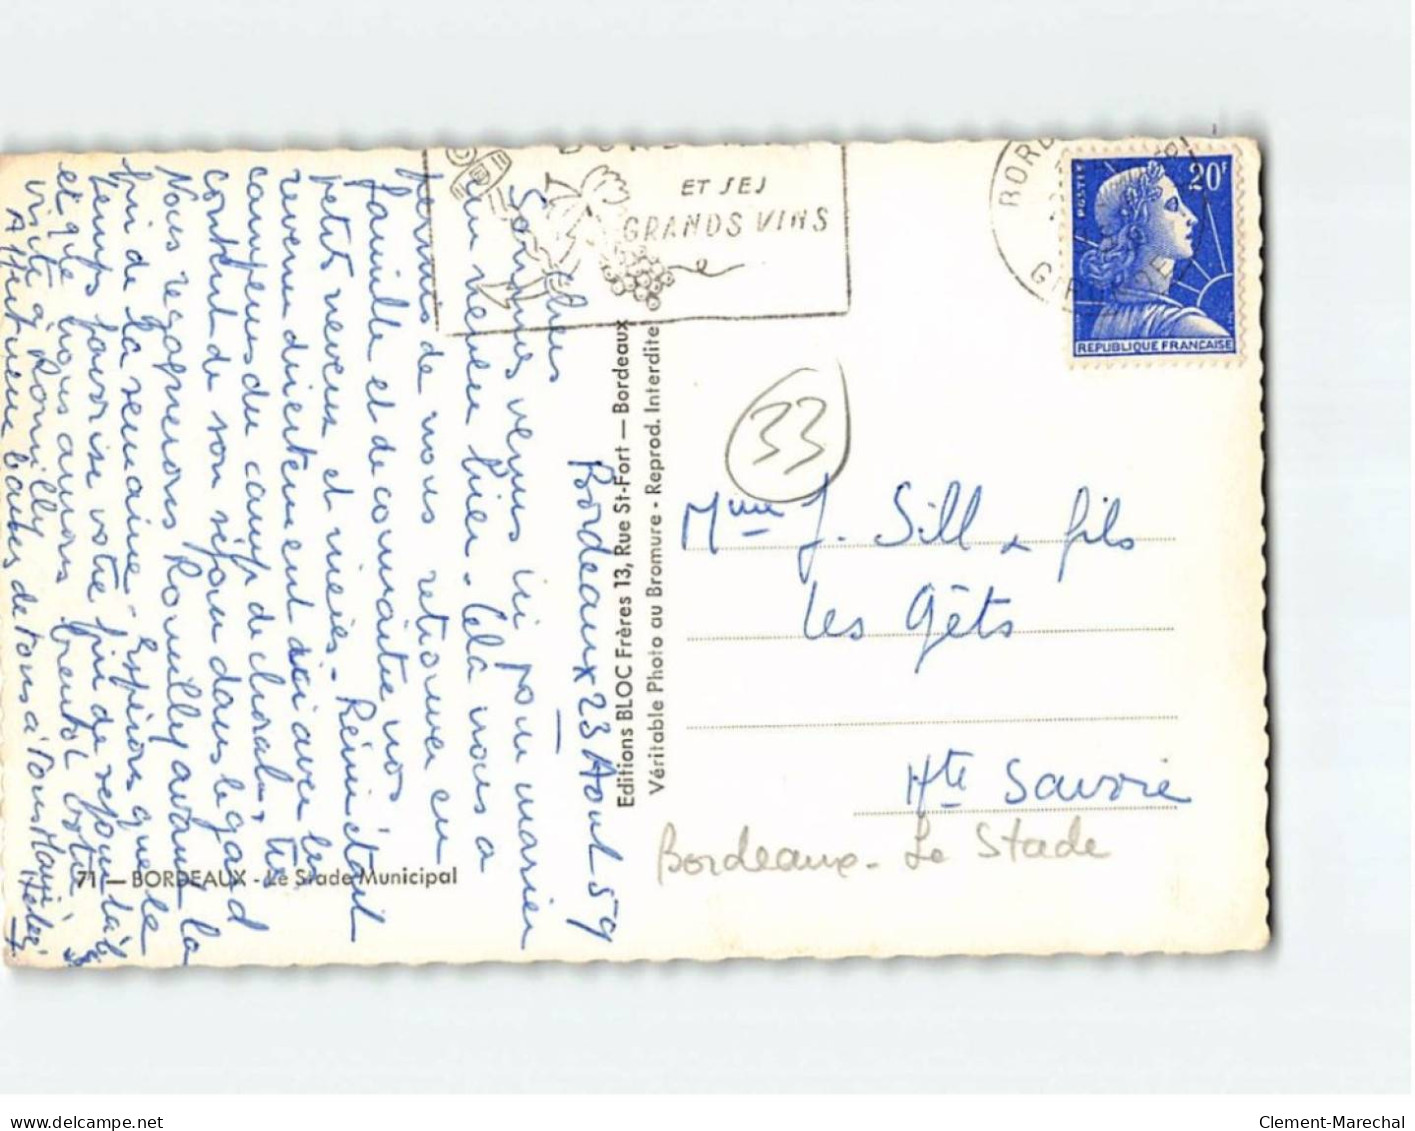 BORDEAUX
ET SES
GRANDS VINS
BORD
GIRONDE
POSTES
20F
REPUBLIQUE FRANÇAISE
33
Bordeaux 23 Août 59
Chers
Sommes venus ici pour marier
un neveu hier. Cela nous a
permis de nous retrouver en
famille et de connaître nos
petits neveux et nièces. Rémi était
revenu directement ici avec les
campeurs du camp de chorale, très
content de son séjour dans le gard
Nous regagnerons Romilly avant la
fin de la semaine. Espérons que le
temps favorise votre fin de séjour là
et que nous aurons bientôt votre
visite à Romilly
Affectueux baisers de tous à tous
Editions BLOC Frères 13, Rue St-Fort — Bordeaux
Véritable Photo au Bromure - Reprod. Interdite
Mme J. Sill & fils
Les Gêts
Hte Savoie
Bordeaux - Le Stade
71 — BORDEAUX - Le Stade Municipal
Clement-Marechal